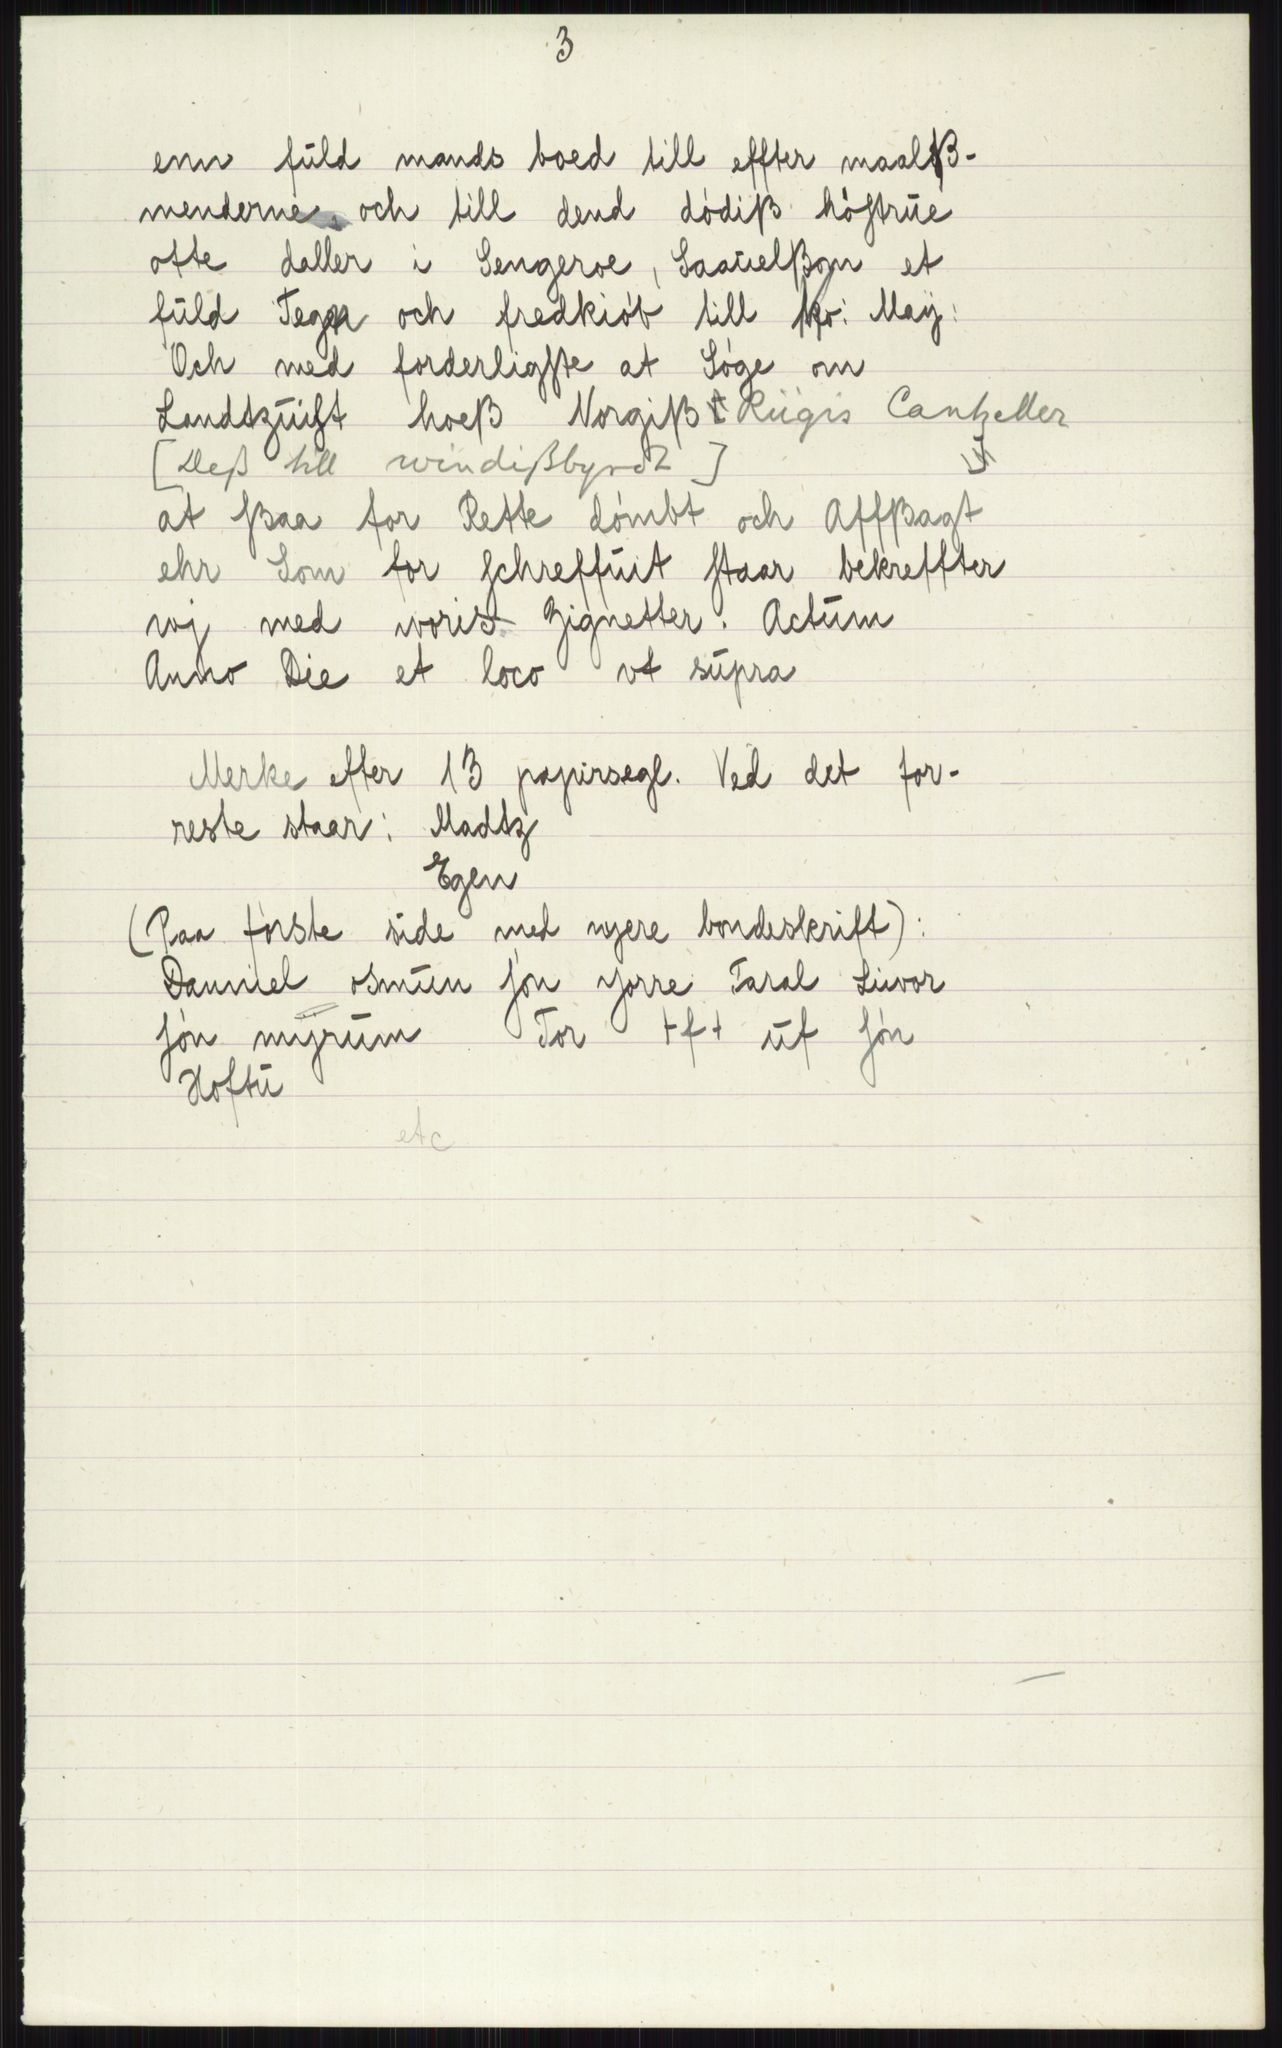 3
enn fúld mands boed till effter maalß-
menderne, och till dend dódiß hóstrúe
otte daller i Sengeroe, Saaúelßøn et
fúld Tegn och fredkiób till ko: May:
Och med forderligste at Sóge om
Landtzúist hoeß Norgiß Riigis Cantzeller
[Deß till windißbyrdt]
at ßaa for Rette dómbt och Affßagt
ehr Som for schreffúit staar bekreffter
wj med woris Zignetter. Actúm
Anno Die et loco vt súpra
Merke efter 13 papirsegl. Ved det for-
reste staar: Madtz
Egen
(Paa forste side med nyere bondeskrift):
Danniel osmún són yorre Taral Livor
són mýrúm Tor tft úf són
Hoftú
etc